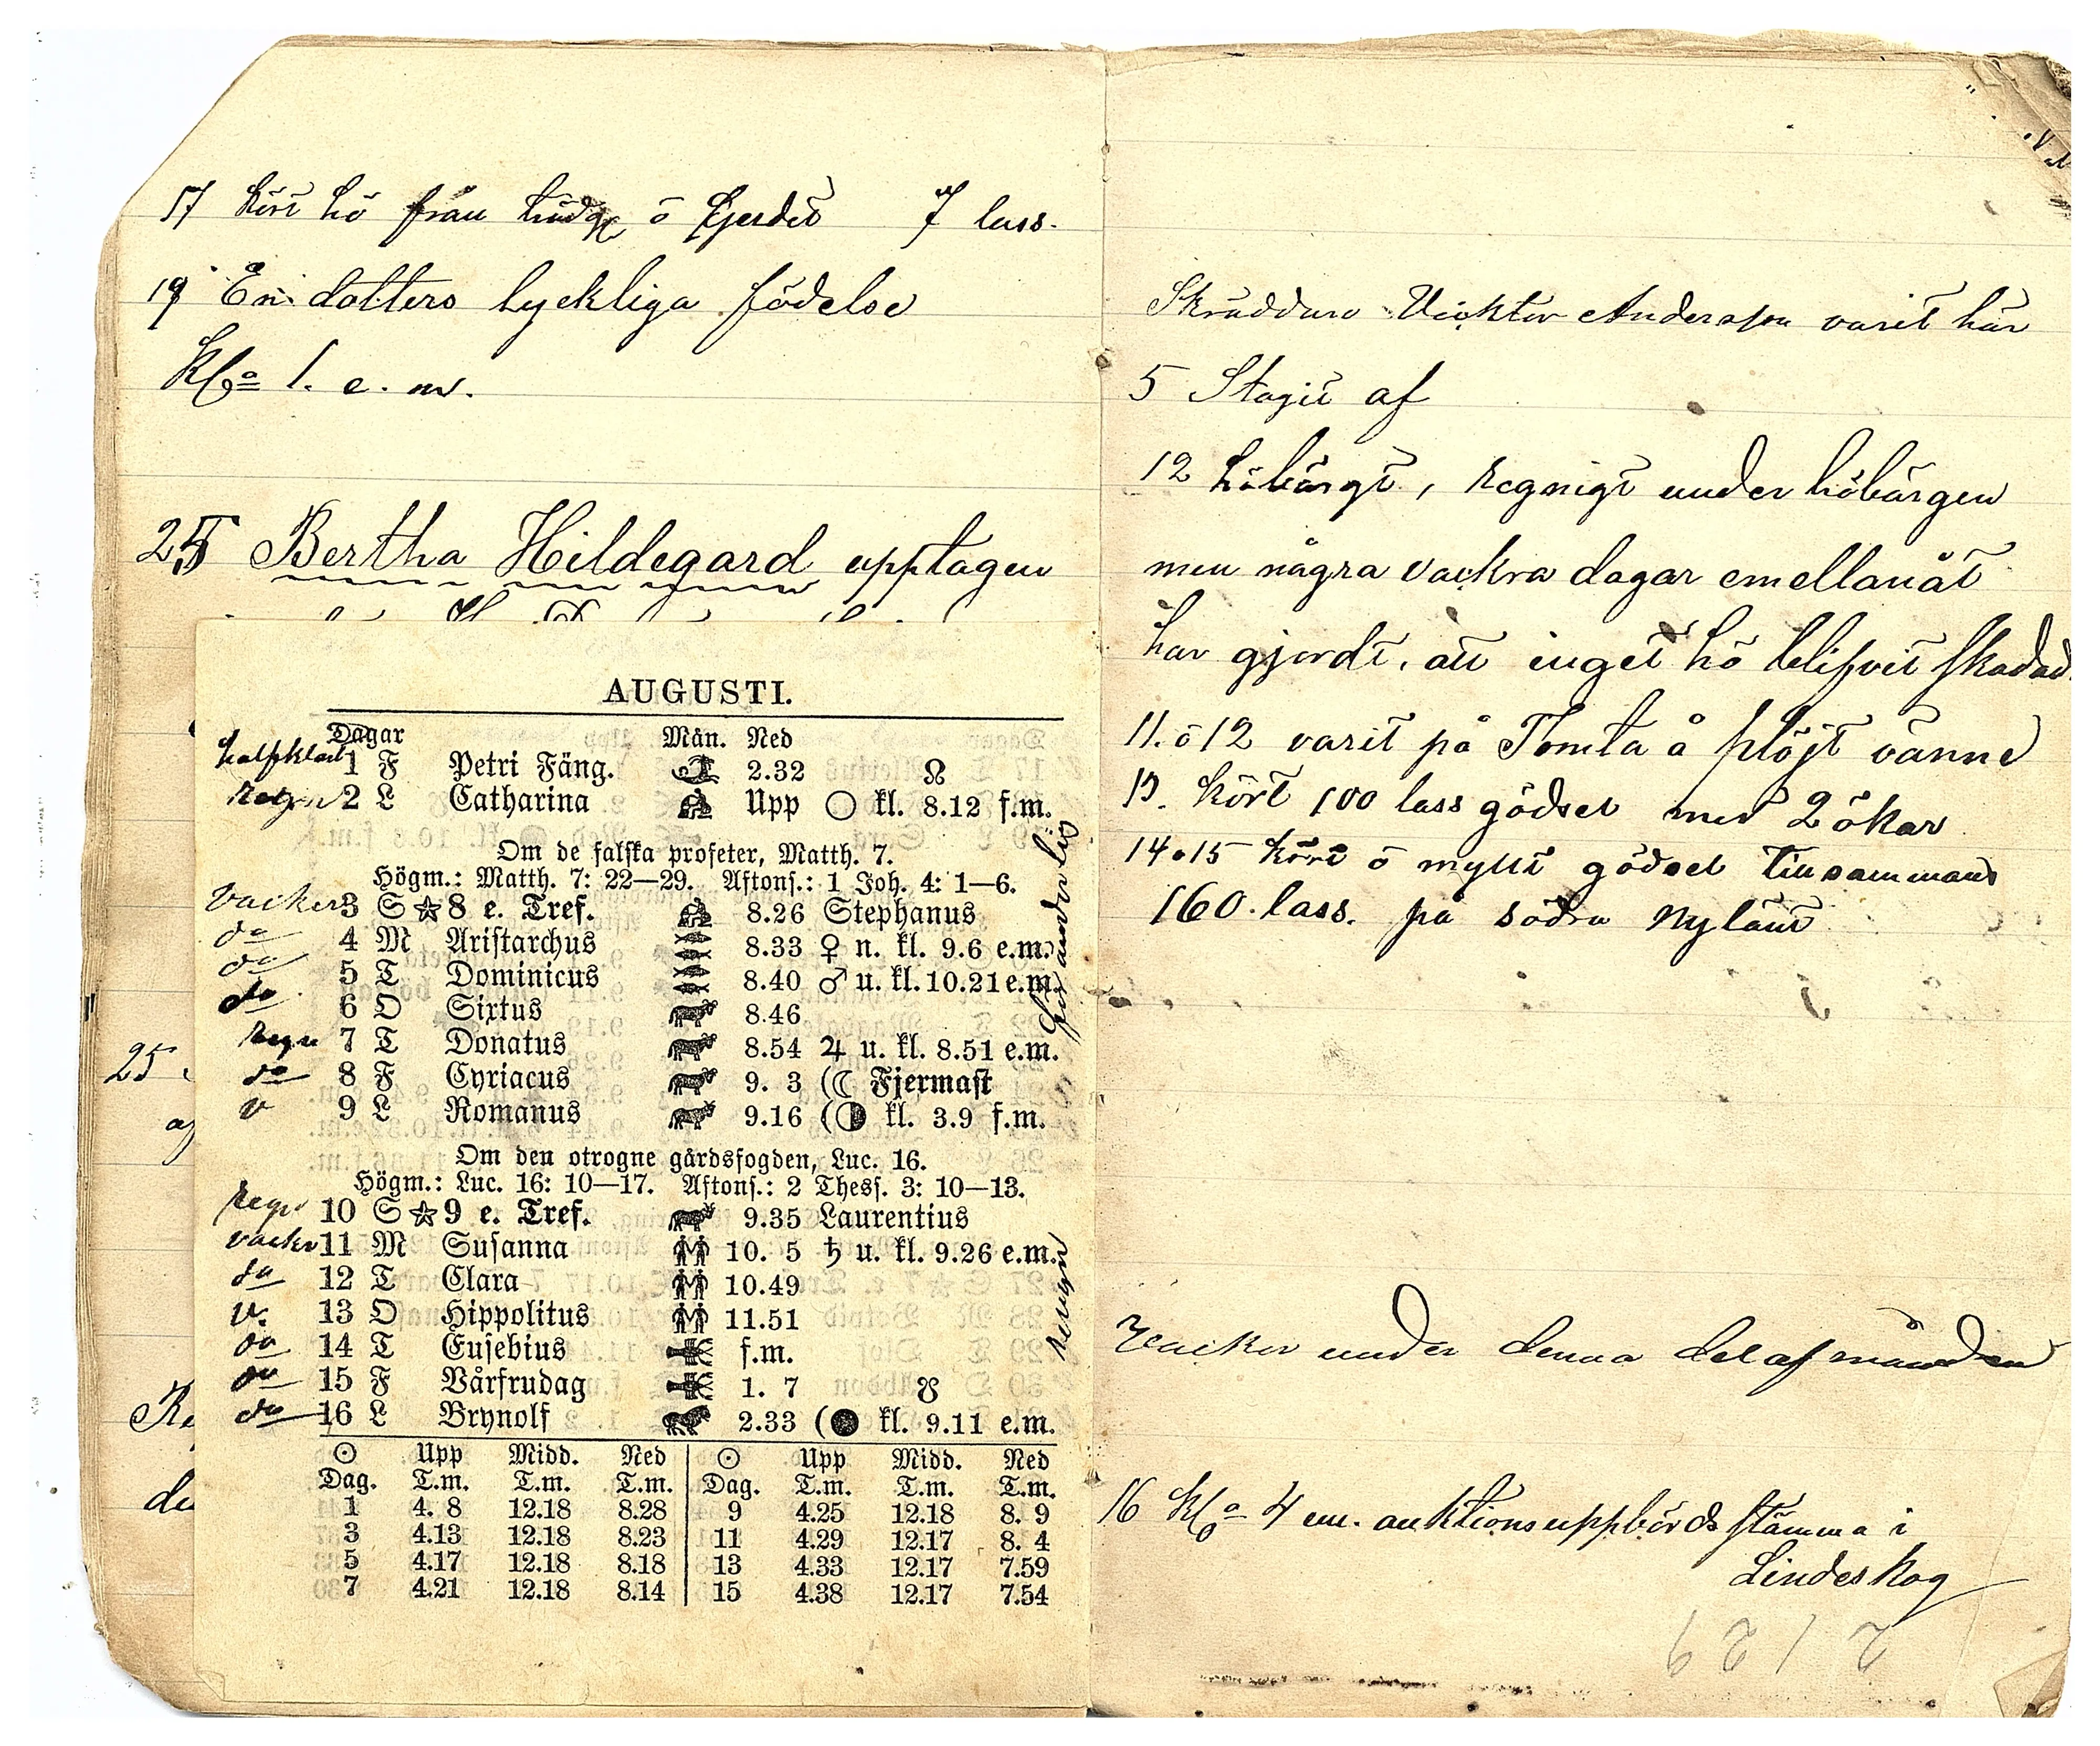 17 kört hö från ö gjerdet 7 lass.
19 En dotters lyckliga födelse
Kl. 1. e. m.
25 Bertha Hildegard upptagen
25
af
AUGUSTI.
Dagar Mån. Ned
halfklart 1 F Petri Fäng. 2.32 ☊
Regn 2 L Catharina Upp ○ kl. 8.12 f.m.
Om de falska profeter, Matth. 7.
Högm.: Matth. 7: 22—29. Aftons.: 1 Joh. 4: 1—6.
vackert 3 S ☆ 8 e. Tref. 8.26 Stephanus
do 4 M Aristarchus 8.33 ♀ n. kl. 9.6 e.m.
do 5 T Dominicus 8.40 ♂ u. kl. 10.21 e.m.
do 6 O Sixtus 8.46
Regn 7 T Donatus 8.54 ♃ u. kl. 8.51 e.m.
do 8 F Cyriacus 9. 3 (☾ Fjermast
v 9 L Romanus 9.16 (◑ kl. 3.9 f.m.
föränderligt
Om den otrogne gårdsfogden, Luc. 16.
Högm.: Luc. 16: 10—17. Aftons.: 2 Thess. 3: 10—13.
Regn 10 S ☆ 9 e. Tref. 9.35 Laurentius
vacker 11 M Susanna 10. 5 ♄ u. kl. 9.26 e.m.
do 12 T Clara 10.49
v. 13 O Hippolitus 11.51
do 14 T Eusebius f.m.
do 15 F Vårfrudag 1. 7 ☋
do 16 L Brynolf 2.33 (● kl. 9.11 e.m.
☉ Upp Midd. Ned ☉ Upp Midd. Ned
Dag. T.m. T.m. T.m. Dag. T.m. T.m. T.m.
1 4. 8 12.18 8.28 9 4.25 12.18 8. 9
3 4.13 12.18 8.23 11 4.29 12.17 8. 4
5 4.17 12.18 8.18 13 4.33 12.17 7.59
7 4.21 12.18 8.14 15 4.38 12.17 7.54
Skräddare Vicktor Andersson varit här
5 Slagit af
12 höbärgt, regnigt under höbärgen
men några vackra dagar emellanåt
har gjordt, att inget hö blifvit skadad.
11. o 12 varit på Tomta å plöjt vänne
13. kört 100 lass gödsel med 2 ökar
14 o 15 kört o myllt gödsel tillsammans
160. lass. på södra nylänt
Vacker under denna del af månaden
16 Kl. 4 em. auktionsuppbördsstämma i
Lindeskog